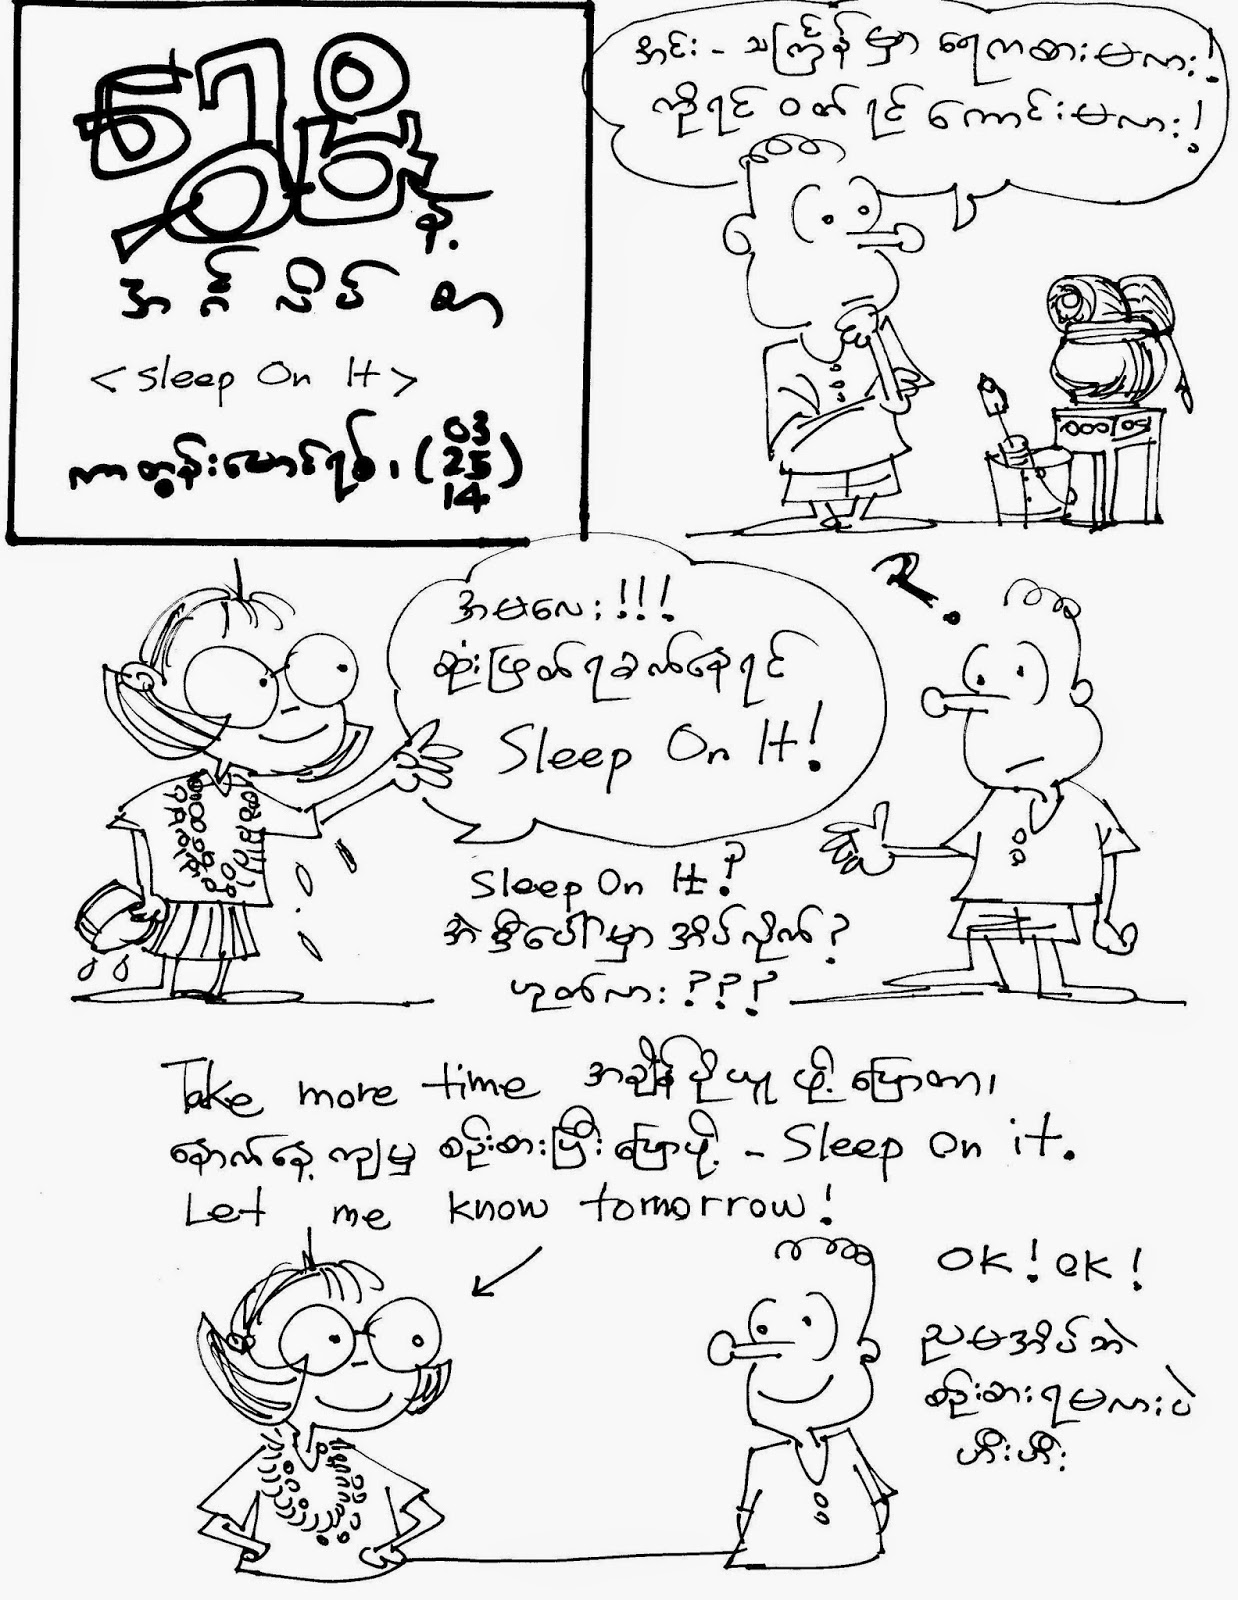 နဲ့
အင်္ဂလိပ်စာ
<Sleep On It>
ကာတွန်းမောင်ရစ်၊ (03 25 14)
အင်း - သင်္ကြန်မှာ ရေကစားမလား!
ကိုရင် ဝတ်ရင် ကောင်းမလား!
အမလေး!!!
ဆုံးဖြတ်ရခက်နေရင်
Sleep On It!
Sleep On It?
အဲဒီပေါ်မှာ အိပ်လိုက်?
ဟုတ်လား ???
Take more time အချိန်ပိုယူဖို့ ပြောတာ၊
နောက်နေ့ကျမှ စဉ်းစားပြီး ပြောဖို့ - Sleep On it.
Let me know tomorrow!
OK! OK!
ညမအိပ်ဘဲ
စဉ်းစားရမလားပဲ
ဟီးဟီး